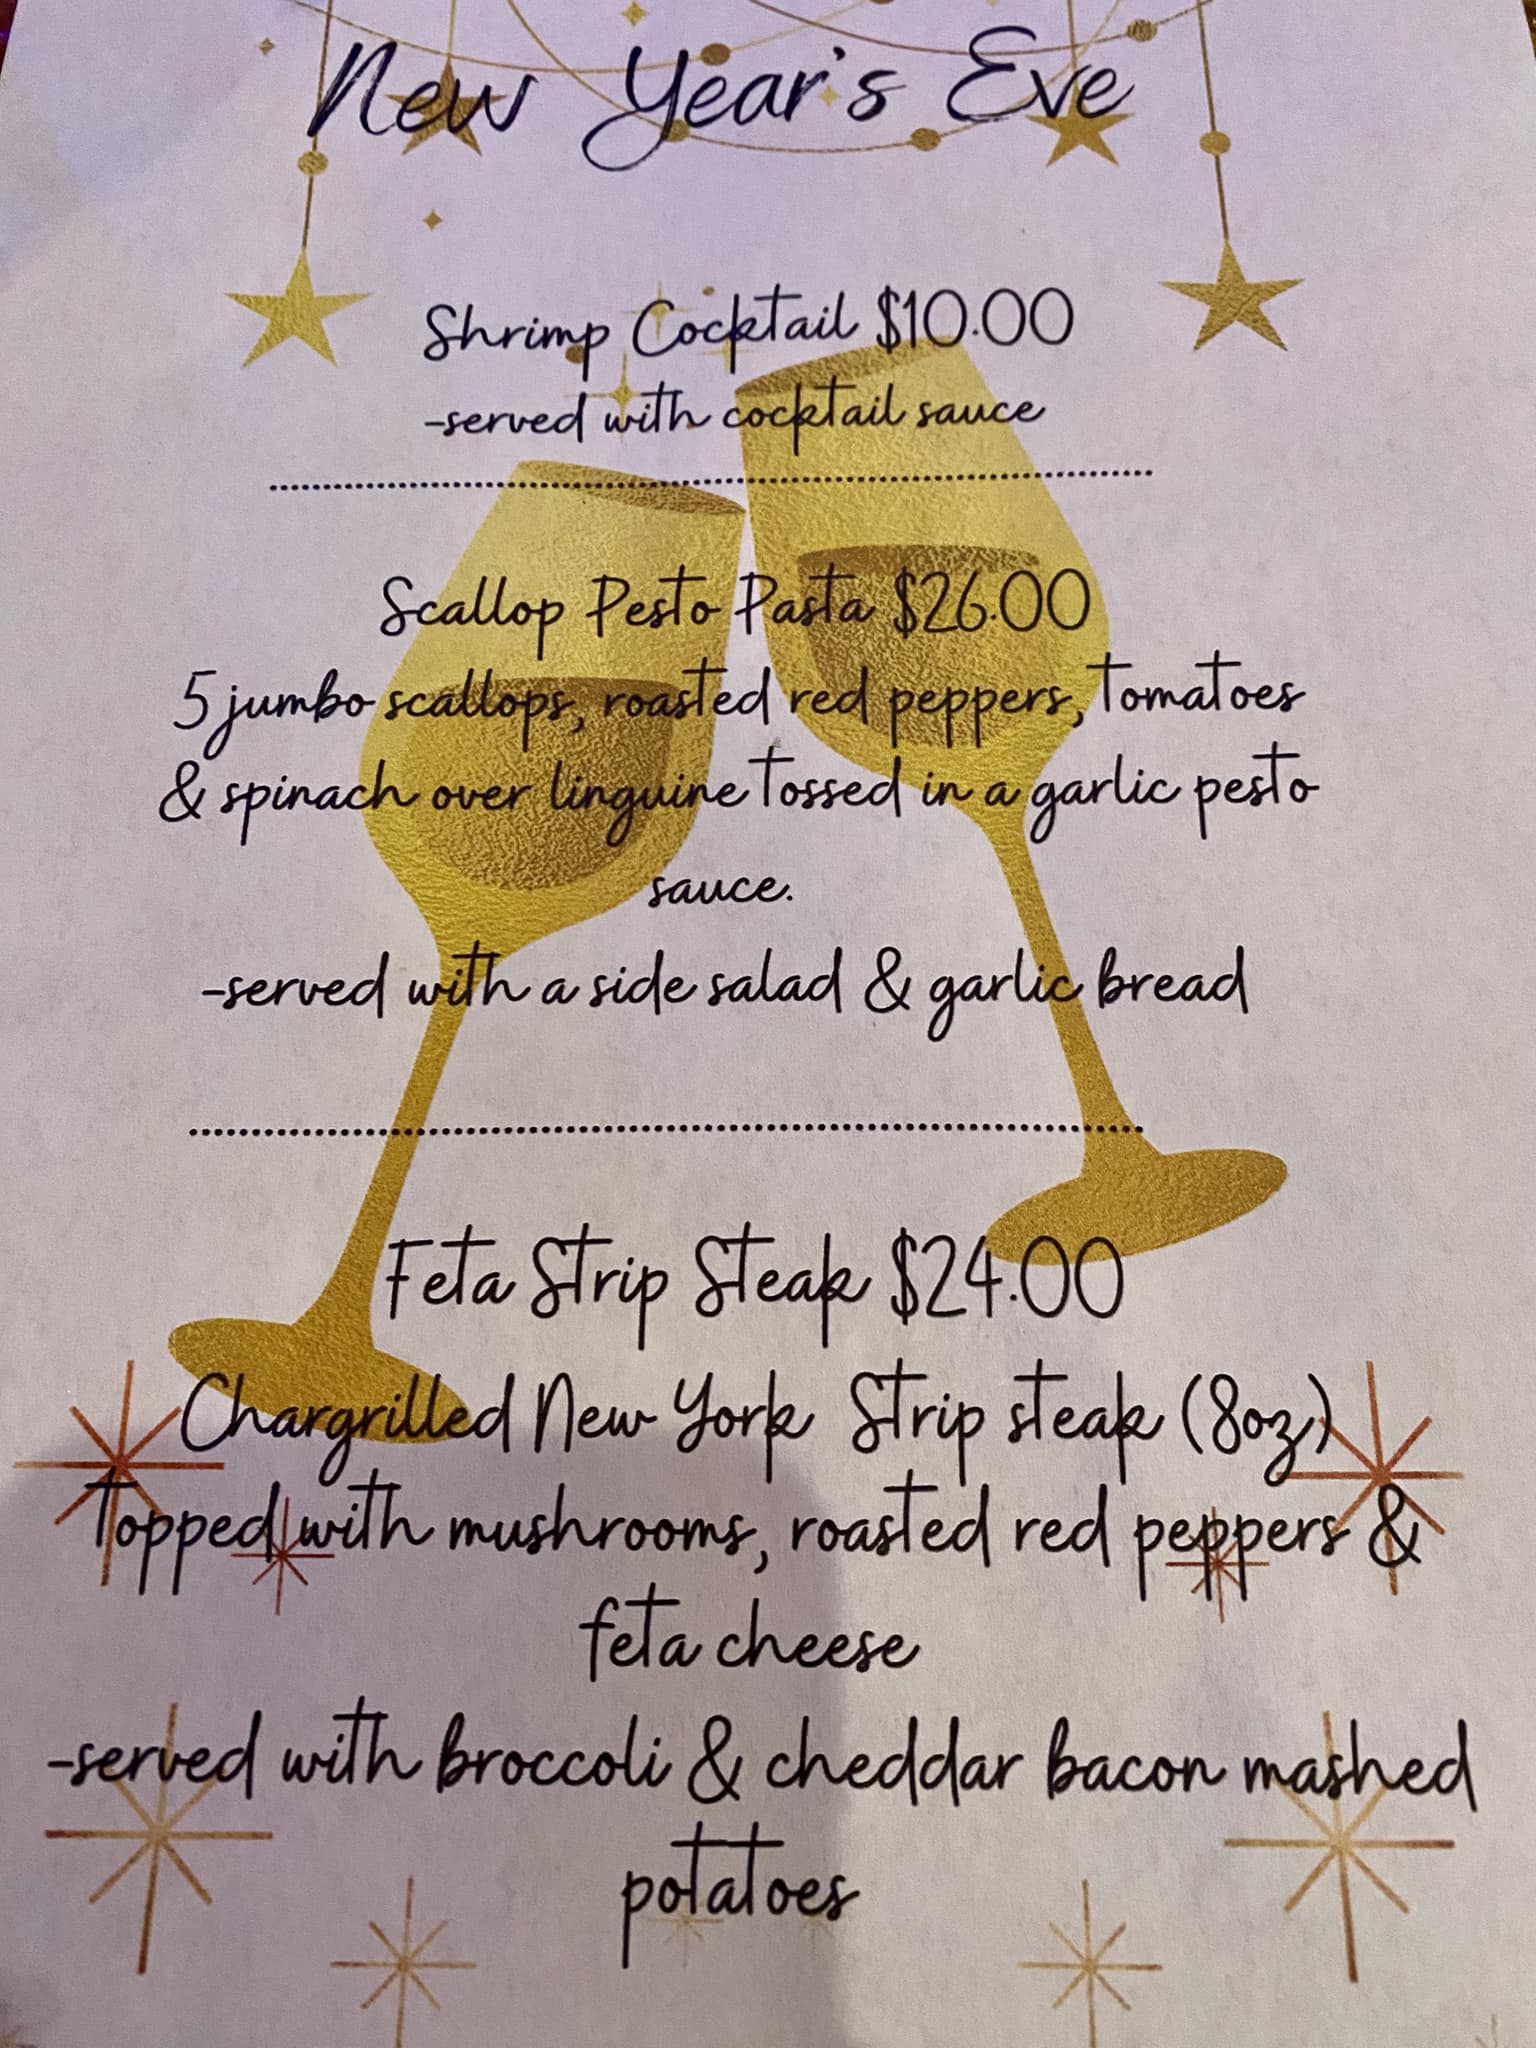 New Year's Eve
Shrimp Cocktail $10.00
-served with cocktail sauce
Scallop Pesto Pasta $26.00
5 jumbo scallops, roasted red peppers, tomatoes
& spinach over linguine tossed in a garlic pesto
sauce.
-served with a side salad & garlic bread
Feta Strip Steak $24.00
Chargrilled New York Strip steak (8oz)
Topped with mushrooms, roasted red peppers &
feta cheese
-served with broccoli & cheddar bacon mashed
potatoes